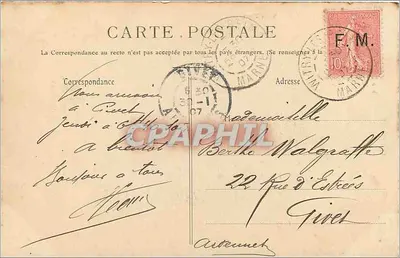 CARTE POSTALE
La Correspondance au recto n'est pas acceptée par tous les pays étrangers. (Se renseigner à la
F. M.
10
VITRY
MARNE
MARNE
Correspondance
Adresse
GIVET
6 30
30 -1
07
Nous arrivons
à Givet
Jeudi à
à bientôt
Bonjour à tous
Mademoiselle
Berthe Malgraffe
22 Rue d'Estrées
Givet
Ardennes
CPAPHIL